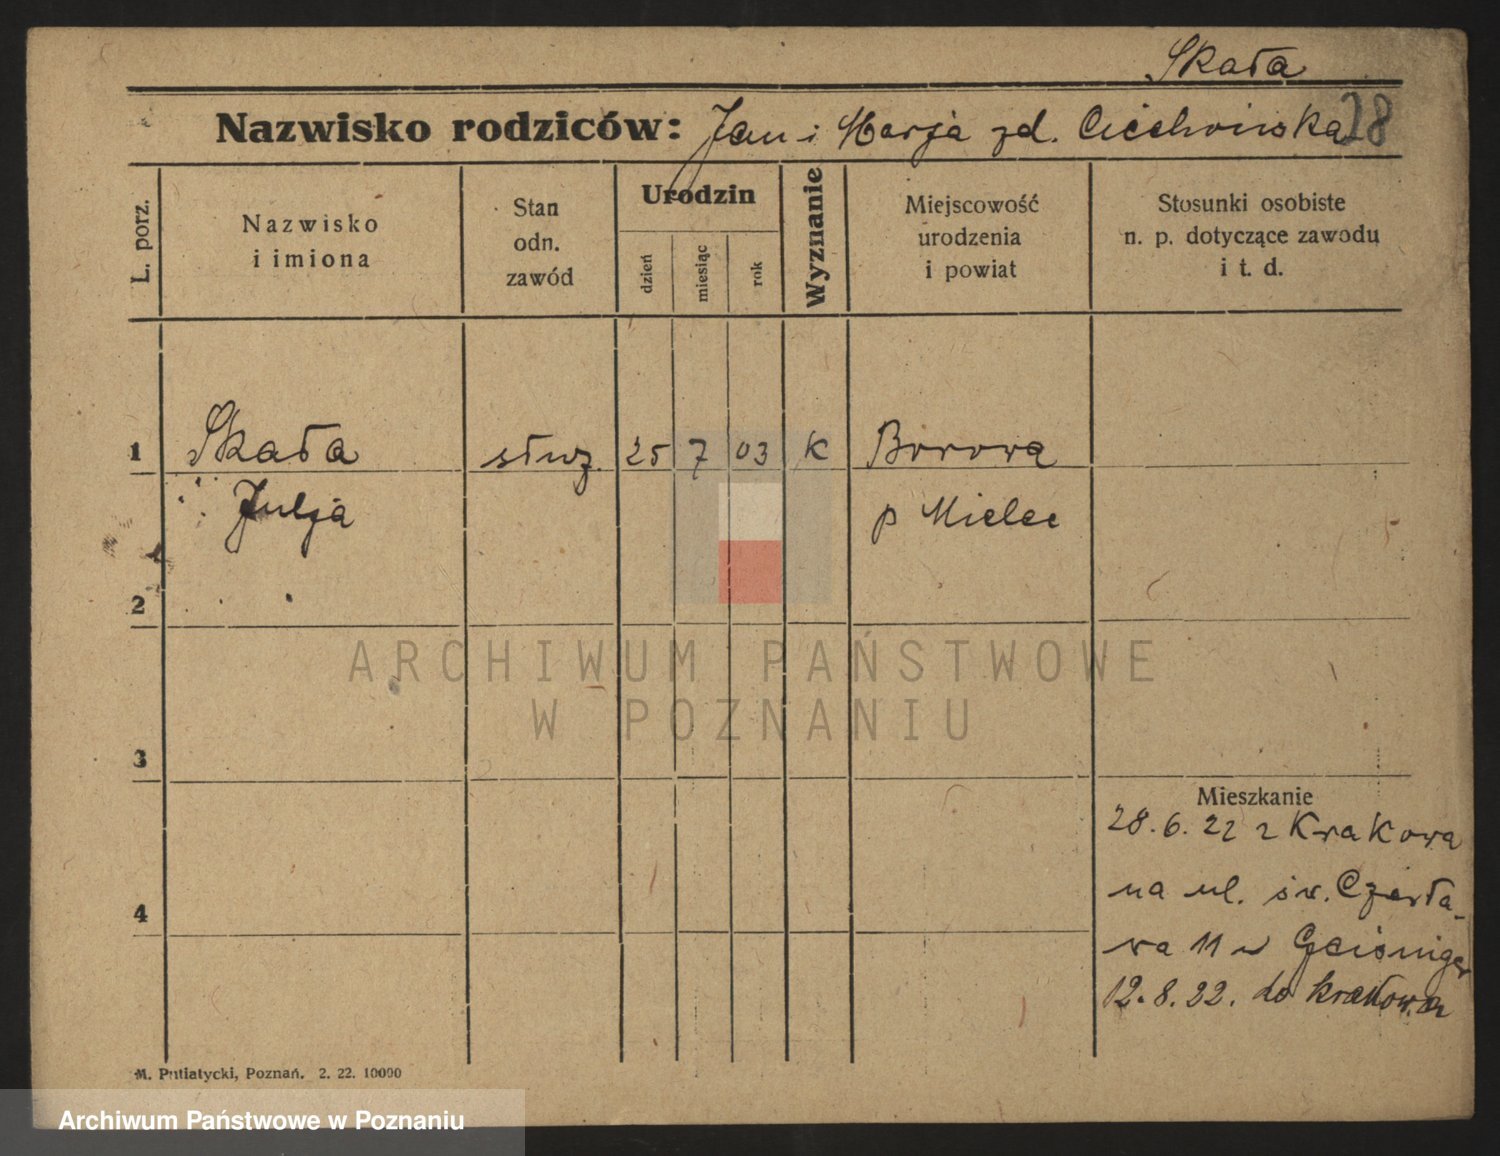 Skała
Nazwisko rodziców: Jan i Marja zd. Ciechońska 28
L. porz.
Nazwisko
i imiona
Stan
odn.
zawód
Urodzin
dzień
miesiąc
rok
Wyznanie
Miejscowość
urodzenia
i powiat
Stosunki osobiste
n. p. dotyczące zawodu
i t. d.
1 Skała służ. 25 7 03 K Borowa
Julja p Mielec
2
3
4
Mieszkanie
28.6.22 z Krakowa
na ul. św. Czesła-
wa 11 u
12.8.22. do Krakowa
M. Putiatycki, Poznań. 2. 22. 10000
ARCHIWUM PAŃSTWOWE
W POZNANIU
Archiwum Państwowe w Poznaniu